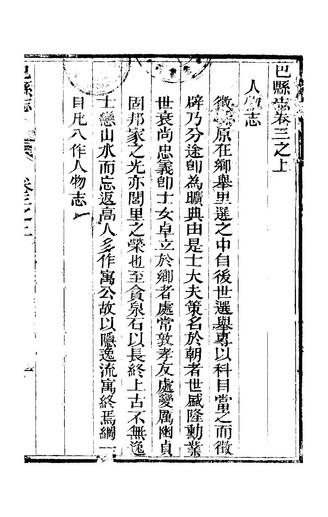 邑縣志卷三之上
人物志
徵 原在鄉舉里選之中自後世選舉專以科目當之而徵
辟乃分途卽為曠典由是士大夫策名於朝者世盛隆勳業
世衰尚忠義卽士女卓立於鄉者處常敦孝友處變厲幽貞
固邦家之光亦閭里之榮也至貪泉石以長終上古不無逸
士戀山水而忘返高人多作寓公故以隱逸流寓終焉綱一
目凡八作人物志
邑縣志